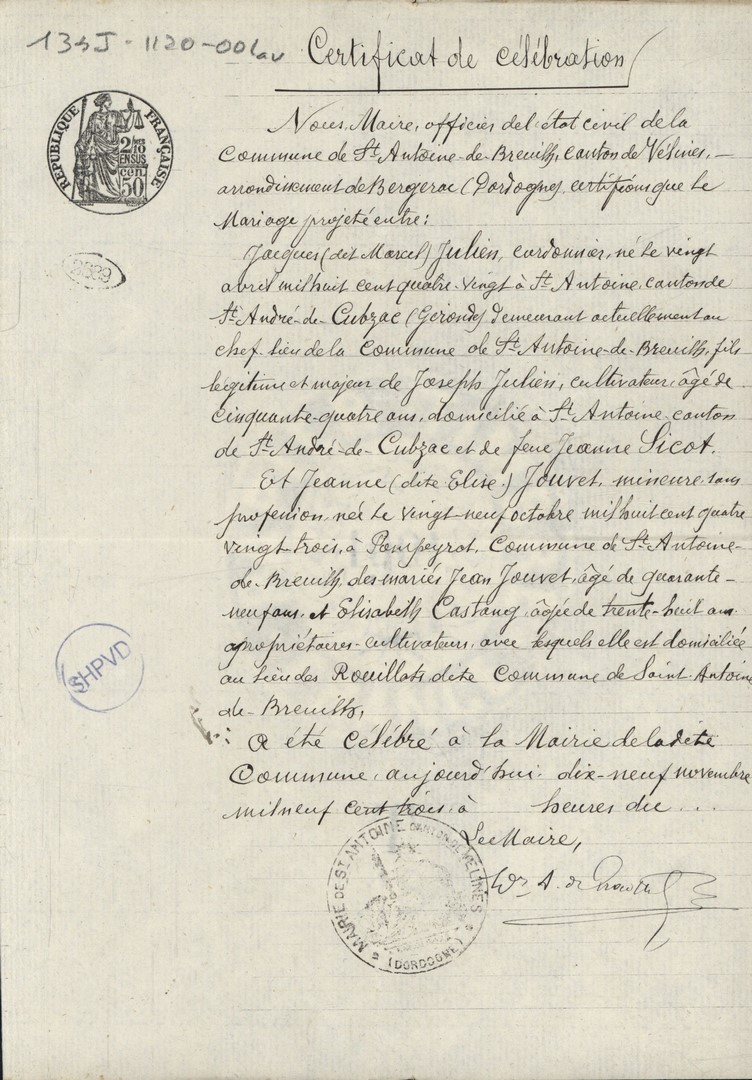 134J-1120-001av
Certificat de célébration
RÉPUBLIQUE FRANÇAISE
2/10
EN SUS
cen.
50
Nous, Maire, officier de l'état civil de la
Commune de St Antoine-de-Breuilh, canton de Vélines,
arrondissement de Bergerac (Dordogne), certifions que le
Mariage projeté entre:
Jacques (dit Marcel) Julien, cordonnier, né le vingt
avril mil huit cent quatre-vingt à St Antoine, canton de
St André-de-Cubzac (Gironde) demeurant actuellement au
chef-lieu de la Commune de St Antoine-de-Breuilh, fils
légitime et majeur de Joseph Julien, cultivateur, âgé de
cinquante-quatre ans, domicilié à St Antoine, canton
de St André-de-Cubzac et de feue Jeanne Sicot.
Et Jeanne (dite Elise) Jouvet, mineure, sans
profession, née le vingt-neuf octobre mil huit cent quatre
vingt trois, à Pompeyrot, Commune de St Antoine-
de-Breuilh, des mariés Jean Jouvet, âgé de quarante-
neuf ans, et Elisabeth Castang, âgée de trente-huit ans
propriétaires-cultivateurs, avec lesquels elle est domiciliée
au lieu des Rouillats, dite Commune de Saint-Antoine
de-Breuilh,
SHPVD
a été célébré à la Mairie de ladite
Commune, aujourd'hui, dix-neuf novembre
mil neuf cent trois, à heures du ...
Le Maire,
MAIRIE DE ST ANTOINE CANTON DE VÉLINES
(DORDOGNE)